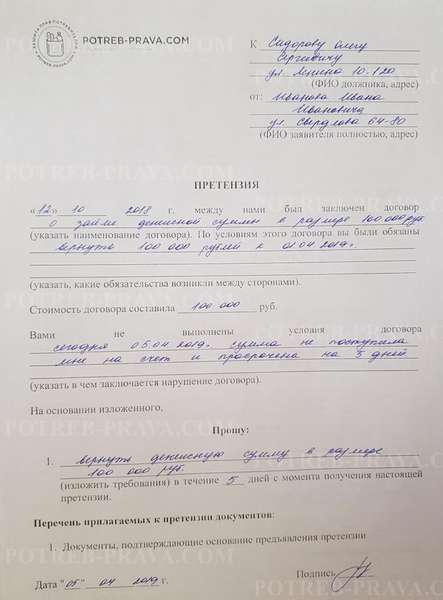 ЗАЩИТА ПРАВ ПОТРЕБИТЕЛЕЙ
POTREB-PRAVA.COM
К Сидорову Олегу
Сергеевичу
ул. Ленина 10-120
(ФИО должника, адрес)
от: Иванова Ивана
Ивановича
ул. Свердлова 64-80
(ФИО заявителя полностью, адрес)
ПРЕТЕНЗИЯ
«12» 10 2018 г. между нами был заключен договор
о займе денежной суммы в размере 100 000 руб.
(указать наименование договора). По условиям этого договора вы были обязаны
вернуть 100 000 рублей к 01.04.2019г.
(указать, какие обязательства возникли между сторонами).
Стоимость договора составила 100 000 руб.
Вами не выполнены условия договора
сегодня 05.04.2019г. сумма не поступила
мне на счет и просрочена на 5 дней
(указать в чем заключается нарушение договора).
На основании изложенного,
Прошу:
1. вернуть денежную сумму в размере
100 000 руб.
(изложить требования) в течение 5 дней с момента получения настоящей
претензии.
Перечень прилагаемых к претензии документов:
1. Документы, подтверждающие основание предъявления претензии
Дата "05" 04 2019 г. Подпись